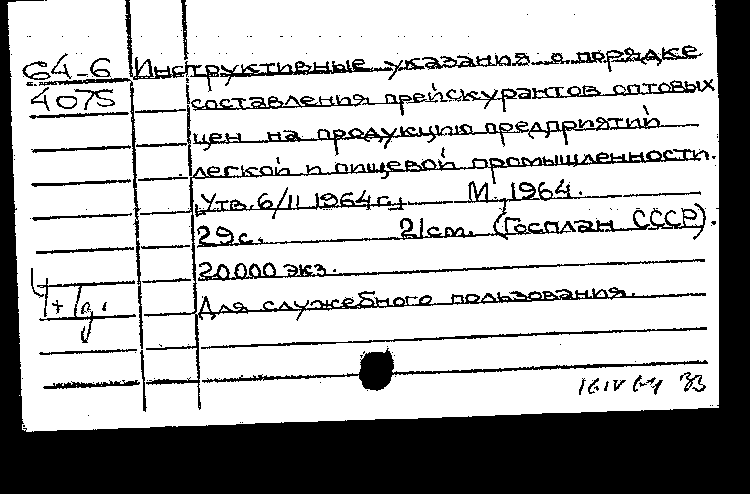 64-6 Инструктивные указания о порядке
4075 составления прейскурантов оптовых
цен на продукцию предприятий
легкой и пищевой промышленности.
Утв. 6/II 1964 г. М., 1964.
29 с. 21 см. (Госплан СССР).
20.000 экз.
Для служебного пользования.